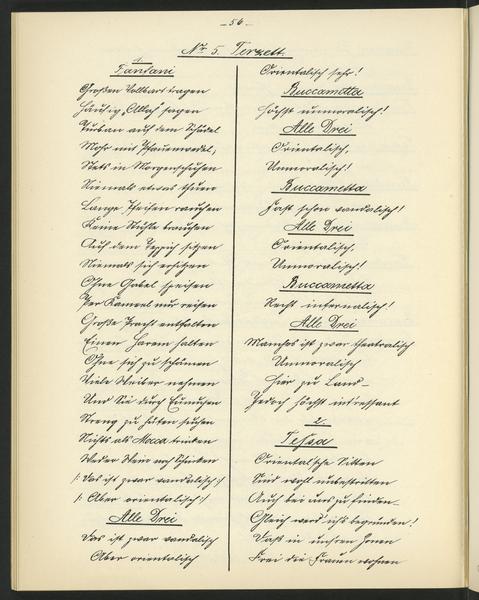 – 56. –
Nr. 5. Terzett.
1.
Fanfani
Großen Vollbart tragen
Häufig "Allah" sagen
Turban auf dem Schädel
Mohr mit Pfauenwedel,
Stets in Morgenschuhen
Niemals etwas thuen
Lange Pfeifen rauchen
Keine Stühle brauchen
Auf dem Teppich sitzen
Niemals sich erhitzen
Ohne Gabel speisen
Per Kameel nur reisen
Große Pracht entfalten
Einen Harem halten
Ohne sich zu schämen
Viele Weiber nehmen
Und Sie durch Eunuchen
Streng zu hüten suchen
Nichts als Mocca trinken
Weder Wein noch Schinken
/: Das ist zwar vandalisch :/
/: Aber orientalisch :/
Alle Drei
Das ist zwar vandalisch
Aber orientalisch
Orientalisch sehr!
Buccametta
Höchst unmoralisch!
Alle Drei
Orientalisch,
Unmoralisch!
Buccametta
Fast schon vandalisch!
Alle Drei
Orientalisch,
Unmoralisch!
Buccametta
Recht infernalisch!
Alle Drei
Manches ist zwar theatralisch
Unmoralisch
Hier zu Land –
Jedoch höchst intressant
2.
Tessa
Orientalsche Sitten
Sind wohl unbestritten
Auch bei uns zu finden –
Gleich werd' ich's begründen!
Daß in unsren Zonen
Frei die Frauen wohnen